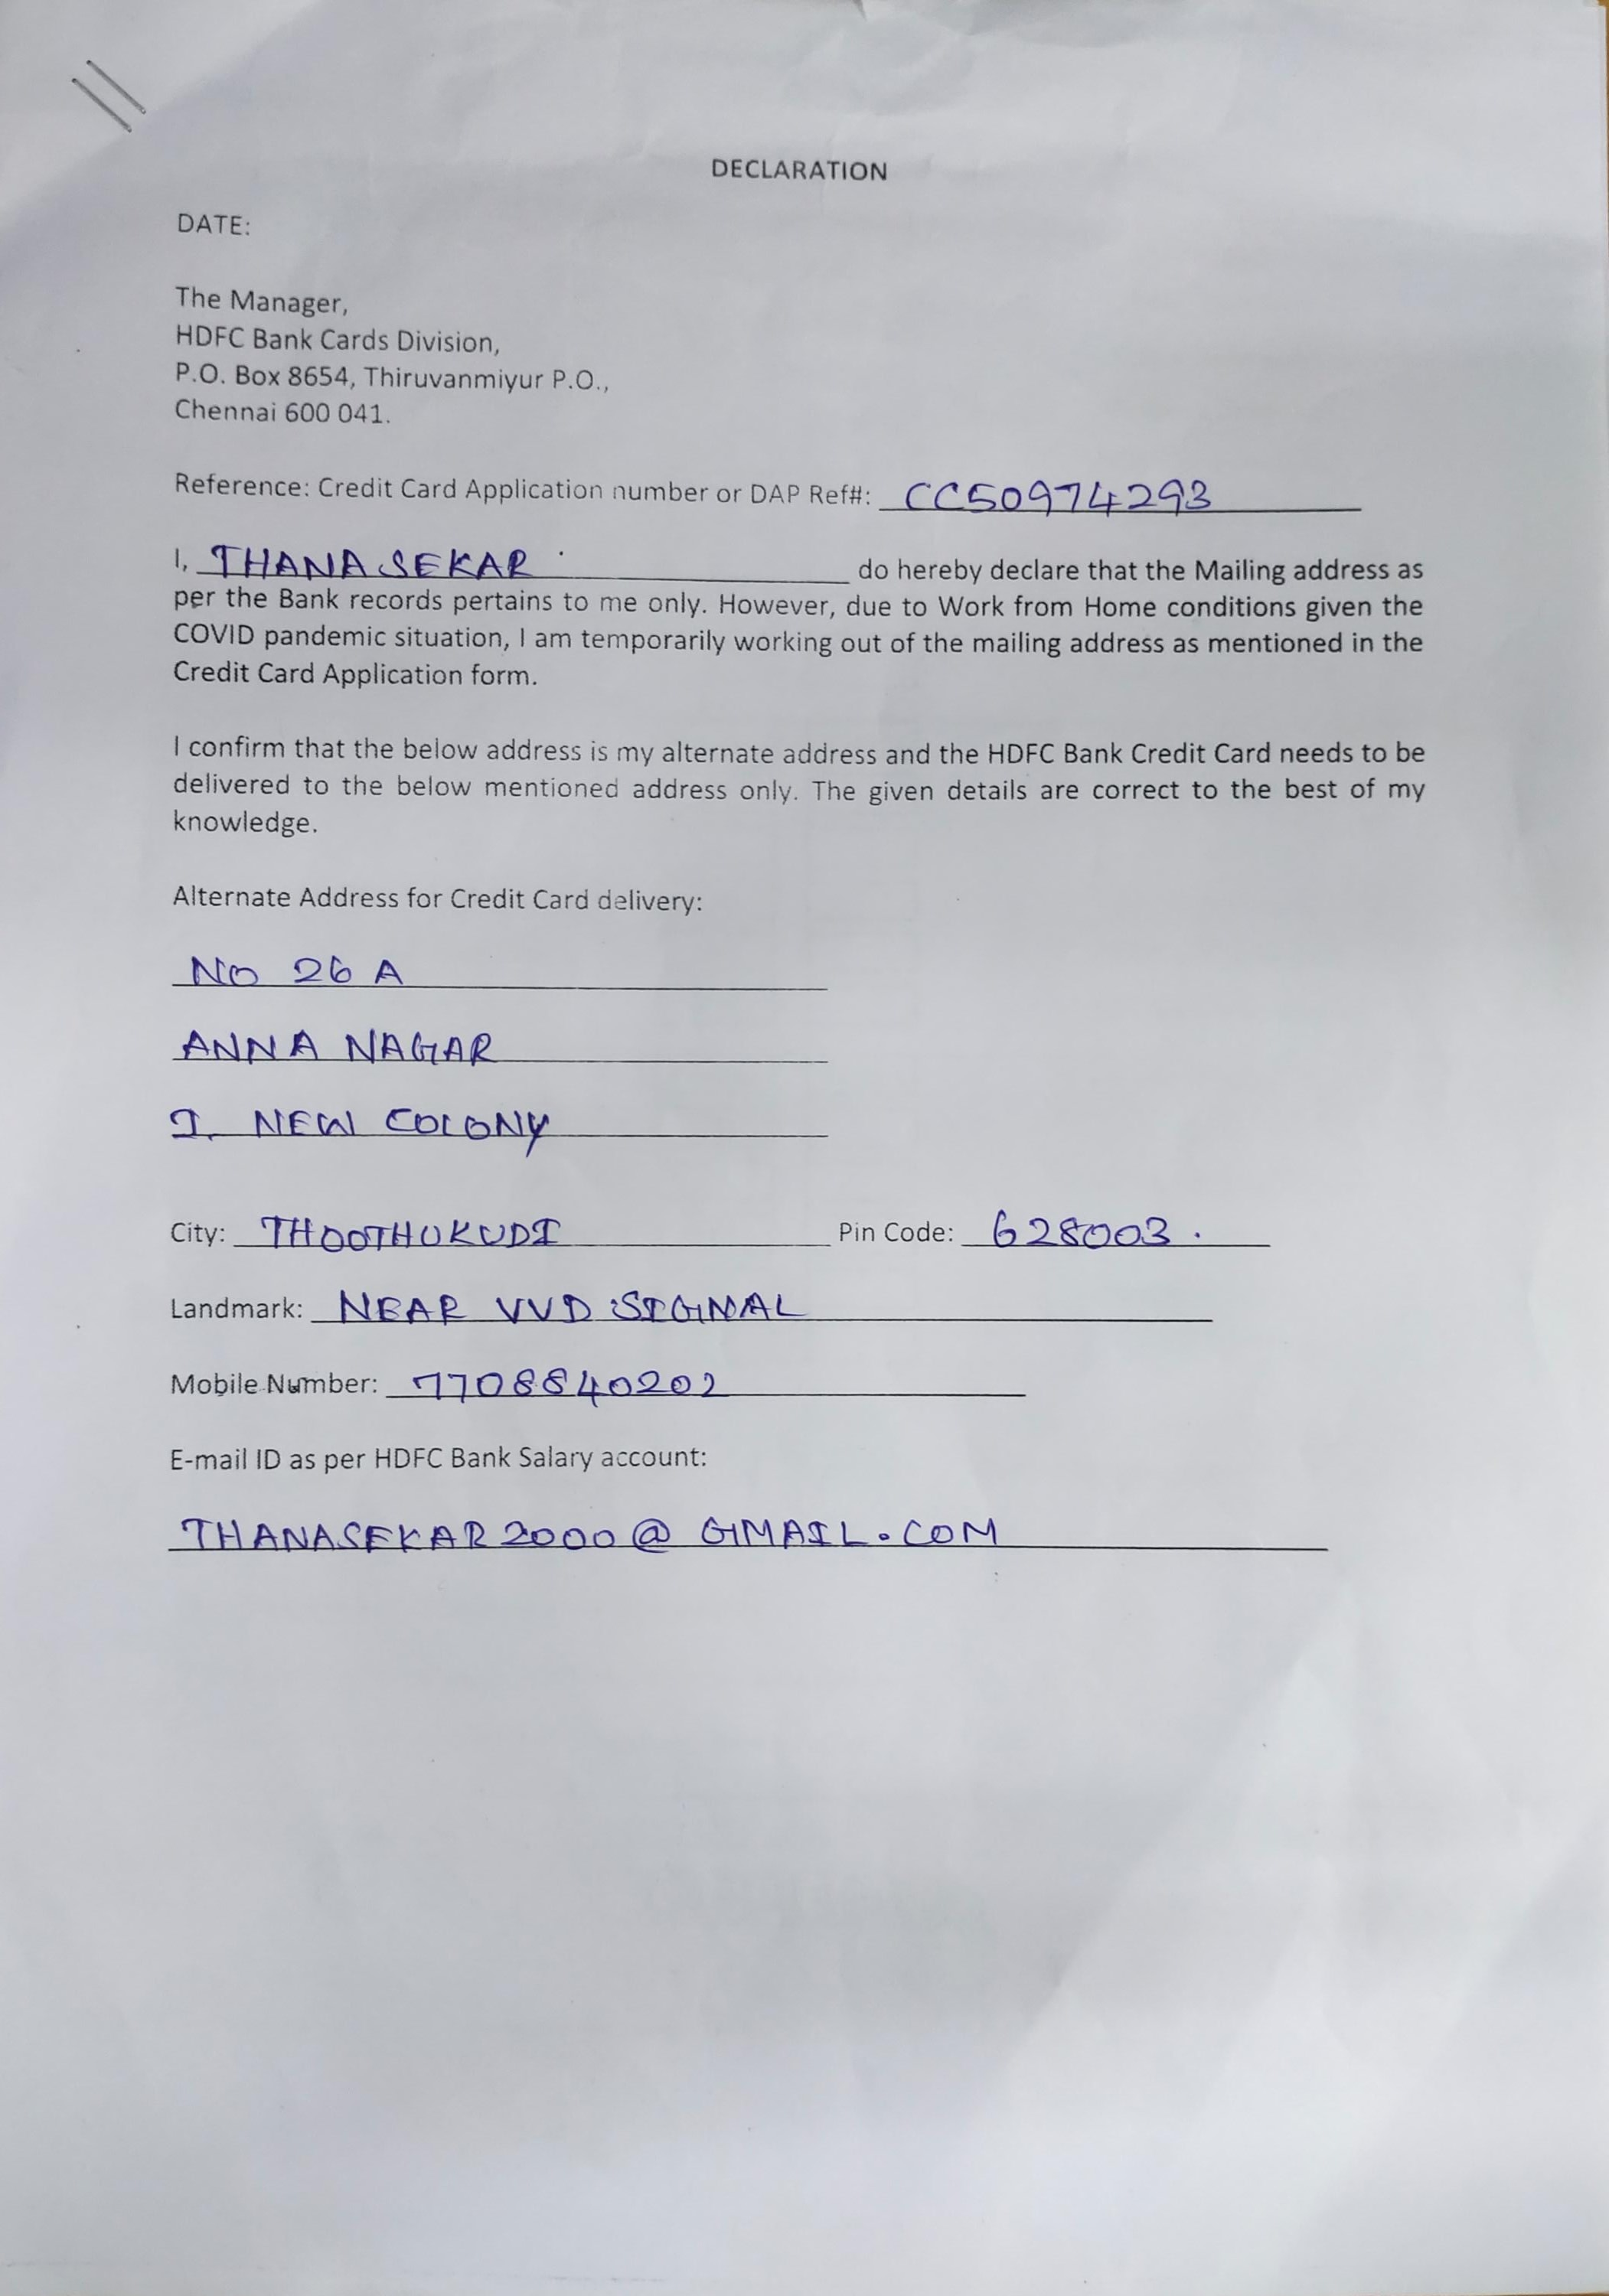 DECLARATION
DATE:
The Manager,
HDFC Bank Cards Division,
P.O. Box 8654, Thiruvanmiyur P.O.,
Chennai 600 041.
Reference: Credit Card Application number or DAP Ref#: CC50974293
I, THANASEKAR do hereby declare that the Mailing address as
per the Bank records pertains to me only. However, due to Work from Home conditions given the
COVID pandemic situation, I am temporarily working out of the mailing address as mentioned in the
Credit Card Application form.
I confirm that the below address is my alternate address and the HDFC Bank Credit Card needs to be
delivered to the below mentioned address only. The given details are correct to the best of my
knowledge.
Alternate Address for Credit Card delivery:
NO 26 A
ANNA NAGAR
I. NEW COLONY
City: THOOTHUKUDI Pin Code: 628003.
Landmark: NEAR VVD SIGNAL
Mobile Number: 7708840202
E-mail ID as per HDFC Bank Salary account:
THANASEKAR2000@GMAIL.COM